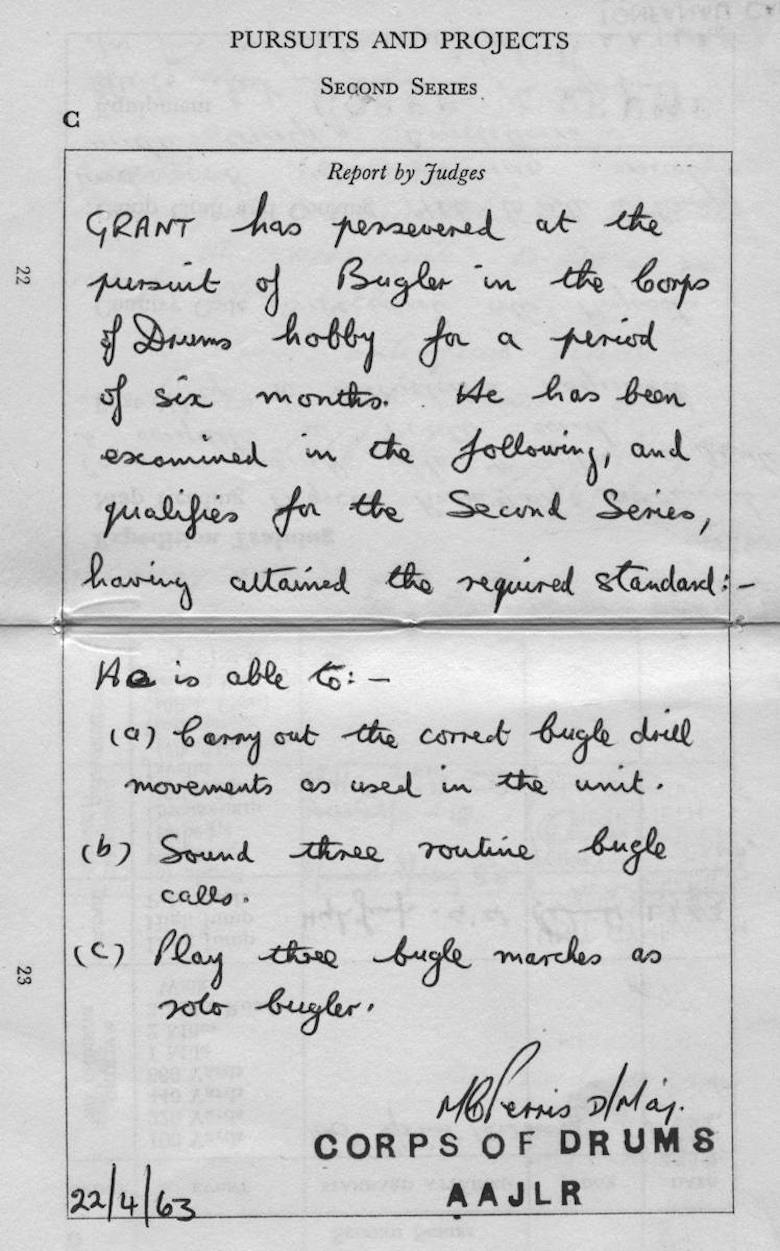 PURSUITS AND PROJECTS
SECOND SERIES
C
Report by Judges
GRANT has persevered at the
pursuit of Bugler in the Corps
of Drums hobby for a period
of six months. He has been
examined in the following, and
qualifies for the Second Series,
having attained the required standard:-
He is able to:-
(a) Carry out the correct bugle drill
movements as used in the unit.
(b) Sound three routine bugle
calls.
(c) Play three bugle marches as
solo bugler.
D/Maj.
CORPS OF DRUMS
AAJLR
22/4/63
22
23